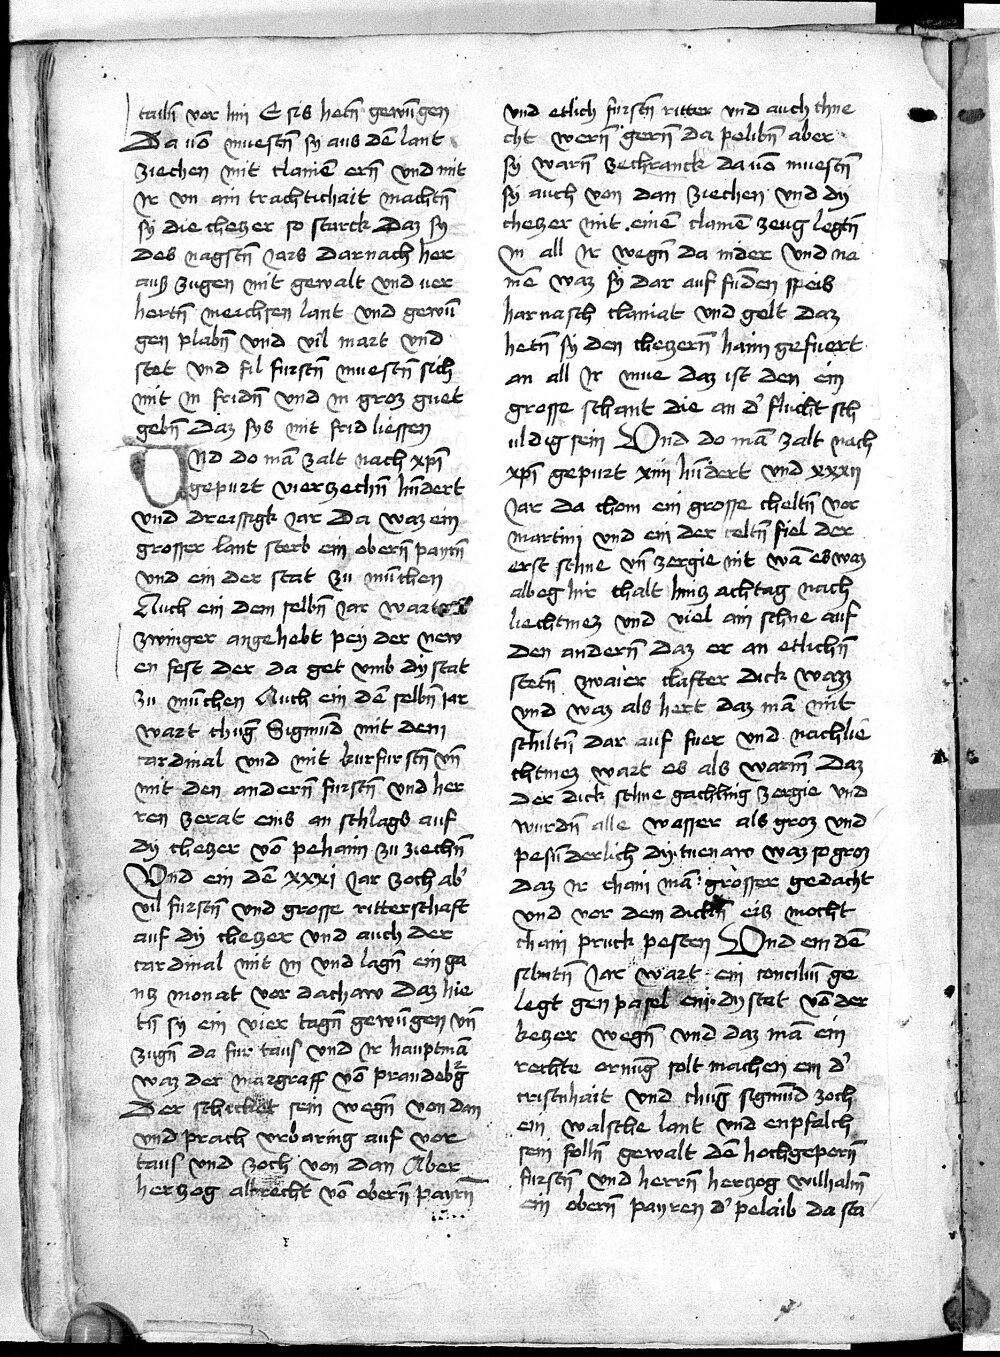 taill vor hin E sis hetn̄ gewūgen
Da vō muestn̄ sy aus dē lant
ziechen mit clainē ern̄ vnd mit
Jr vn ain trachtichait machtn̄
sy die checzer so starck Daz sy
des nagstn̄ Jars darnach her
auß zugen mit gewalt vnd ver
hertn̄ meichsen lant vnd gewū
gen plabn̄ vnd vil mart vnd
stet vnd fil fürstn̄ muestn̄ sich
mit in fridn̄ vnd in groz guet
gebn̄ daz sys mit frid liessen
Vnd do mā zalt nach xpī
gepurt vierzechn̄ hūdert
vnd dreissigk Jar Da waz ein
grosser lant sterb ein obern̄ payrn̄
vnd ein der stat zu mūchen
Auch ein dem selbn̄ Jar wart
zwinger angehebt pey der new
en fest der da get vmb dy stat
zu mūchen Auch ein dē selbn̄ iar
wart chūg Sigmūd mit dem
cardinal vnd mit kurfurstn̄ vn̄
mit den andern̄ fürstn̄ vnd her
ren zerat eins an schlags auf
dy checzer vō pehaim zu ziechn̄
Vnd ein dē xxxi Jar zoch ab'
vil fürstn̄ vnd grosse ritterschaft
auf dy checzer vnd auch der
cardinal mit in vnd lagn̄ ein ga
ncz monat vor dachaw daz hie
tn̄ sy ein vier tagn̄ gewūgen vn̄
zugn̄ da für taus vnd Jr hauptmā
waz der margraff vō prandeb̄g
Der schicket sein wegn̄ von dan
vnd prach vrbaring auf vor
taus vnd zoch von dan Aber
herczog albrecht vō obern̄ payrn̄
vnd etlich fürstn̄ ritter vnd auch chne
cht wern̄ gern̄ da pelibn̄ aber
sy warn̄ zechranck da vō muestn̄
sy auch von dan ziechen vnd dy
checzer mit einē clainē zeug legtn̄
in all Jr wegn̄ da nider vnd na
mē waz sy dar auf fūden speis
harnasch claniat vnd gelt daz
hetn̄ sy den checzern̄ haim gefuert
an all Jr mue daz ist den ein
grosse schant die an d' flucht sch
uldig sein Vnd do mā zalt nach
xpī gepurt xiiii hūdert vnd xxxii
Jar da chom ein grosse cheltn̄ vor
martini vnd ein der celtn̄ fiel der
erst schne vn̄ zergie nit wā es waz
albeg hir chalt hincz achtag nach
liechtmez vnd viel ain schne auf
den andern̄ daz er an etlichn̄
stetn̄ zwaier clafter dick wazz
vnd waz als hert daz mā mit
schlitn̄ dar auf fuer vnd nach lie
chtmez wart es als warm̄ daz
der dick schne gachling zergie vnd
wurdn̄ alle wasser als groz vnd
pesūderlich dy tuenaw waz so groz
daz Jr chain mā grosser gedacht
vnd vor dem dickn̄ eis mocht
chain pruck pesten Vnd ein dē
selbn̄ Jar wart ein conciliū ge
legt gen pasel ein dy stat vō der
keczer wegn̄ vnd daz mā ein
rechte ornūg solt machen ein d'
cristnhait vnd chūg sigmūd zoch
ein walsche lant vnd enpfalch
sein folln̄ gewalt dē hochgeporn̄
fürstn̄ vnd herrn̄ herczog wilhalm̄
ein obern̄ payren d' pelaib da sta